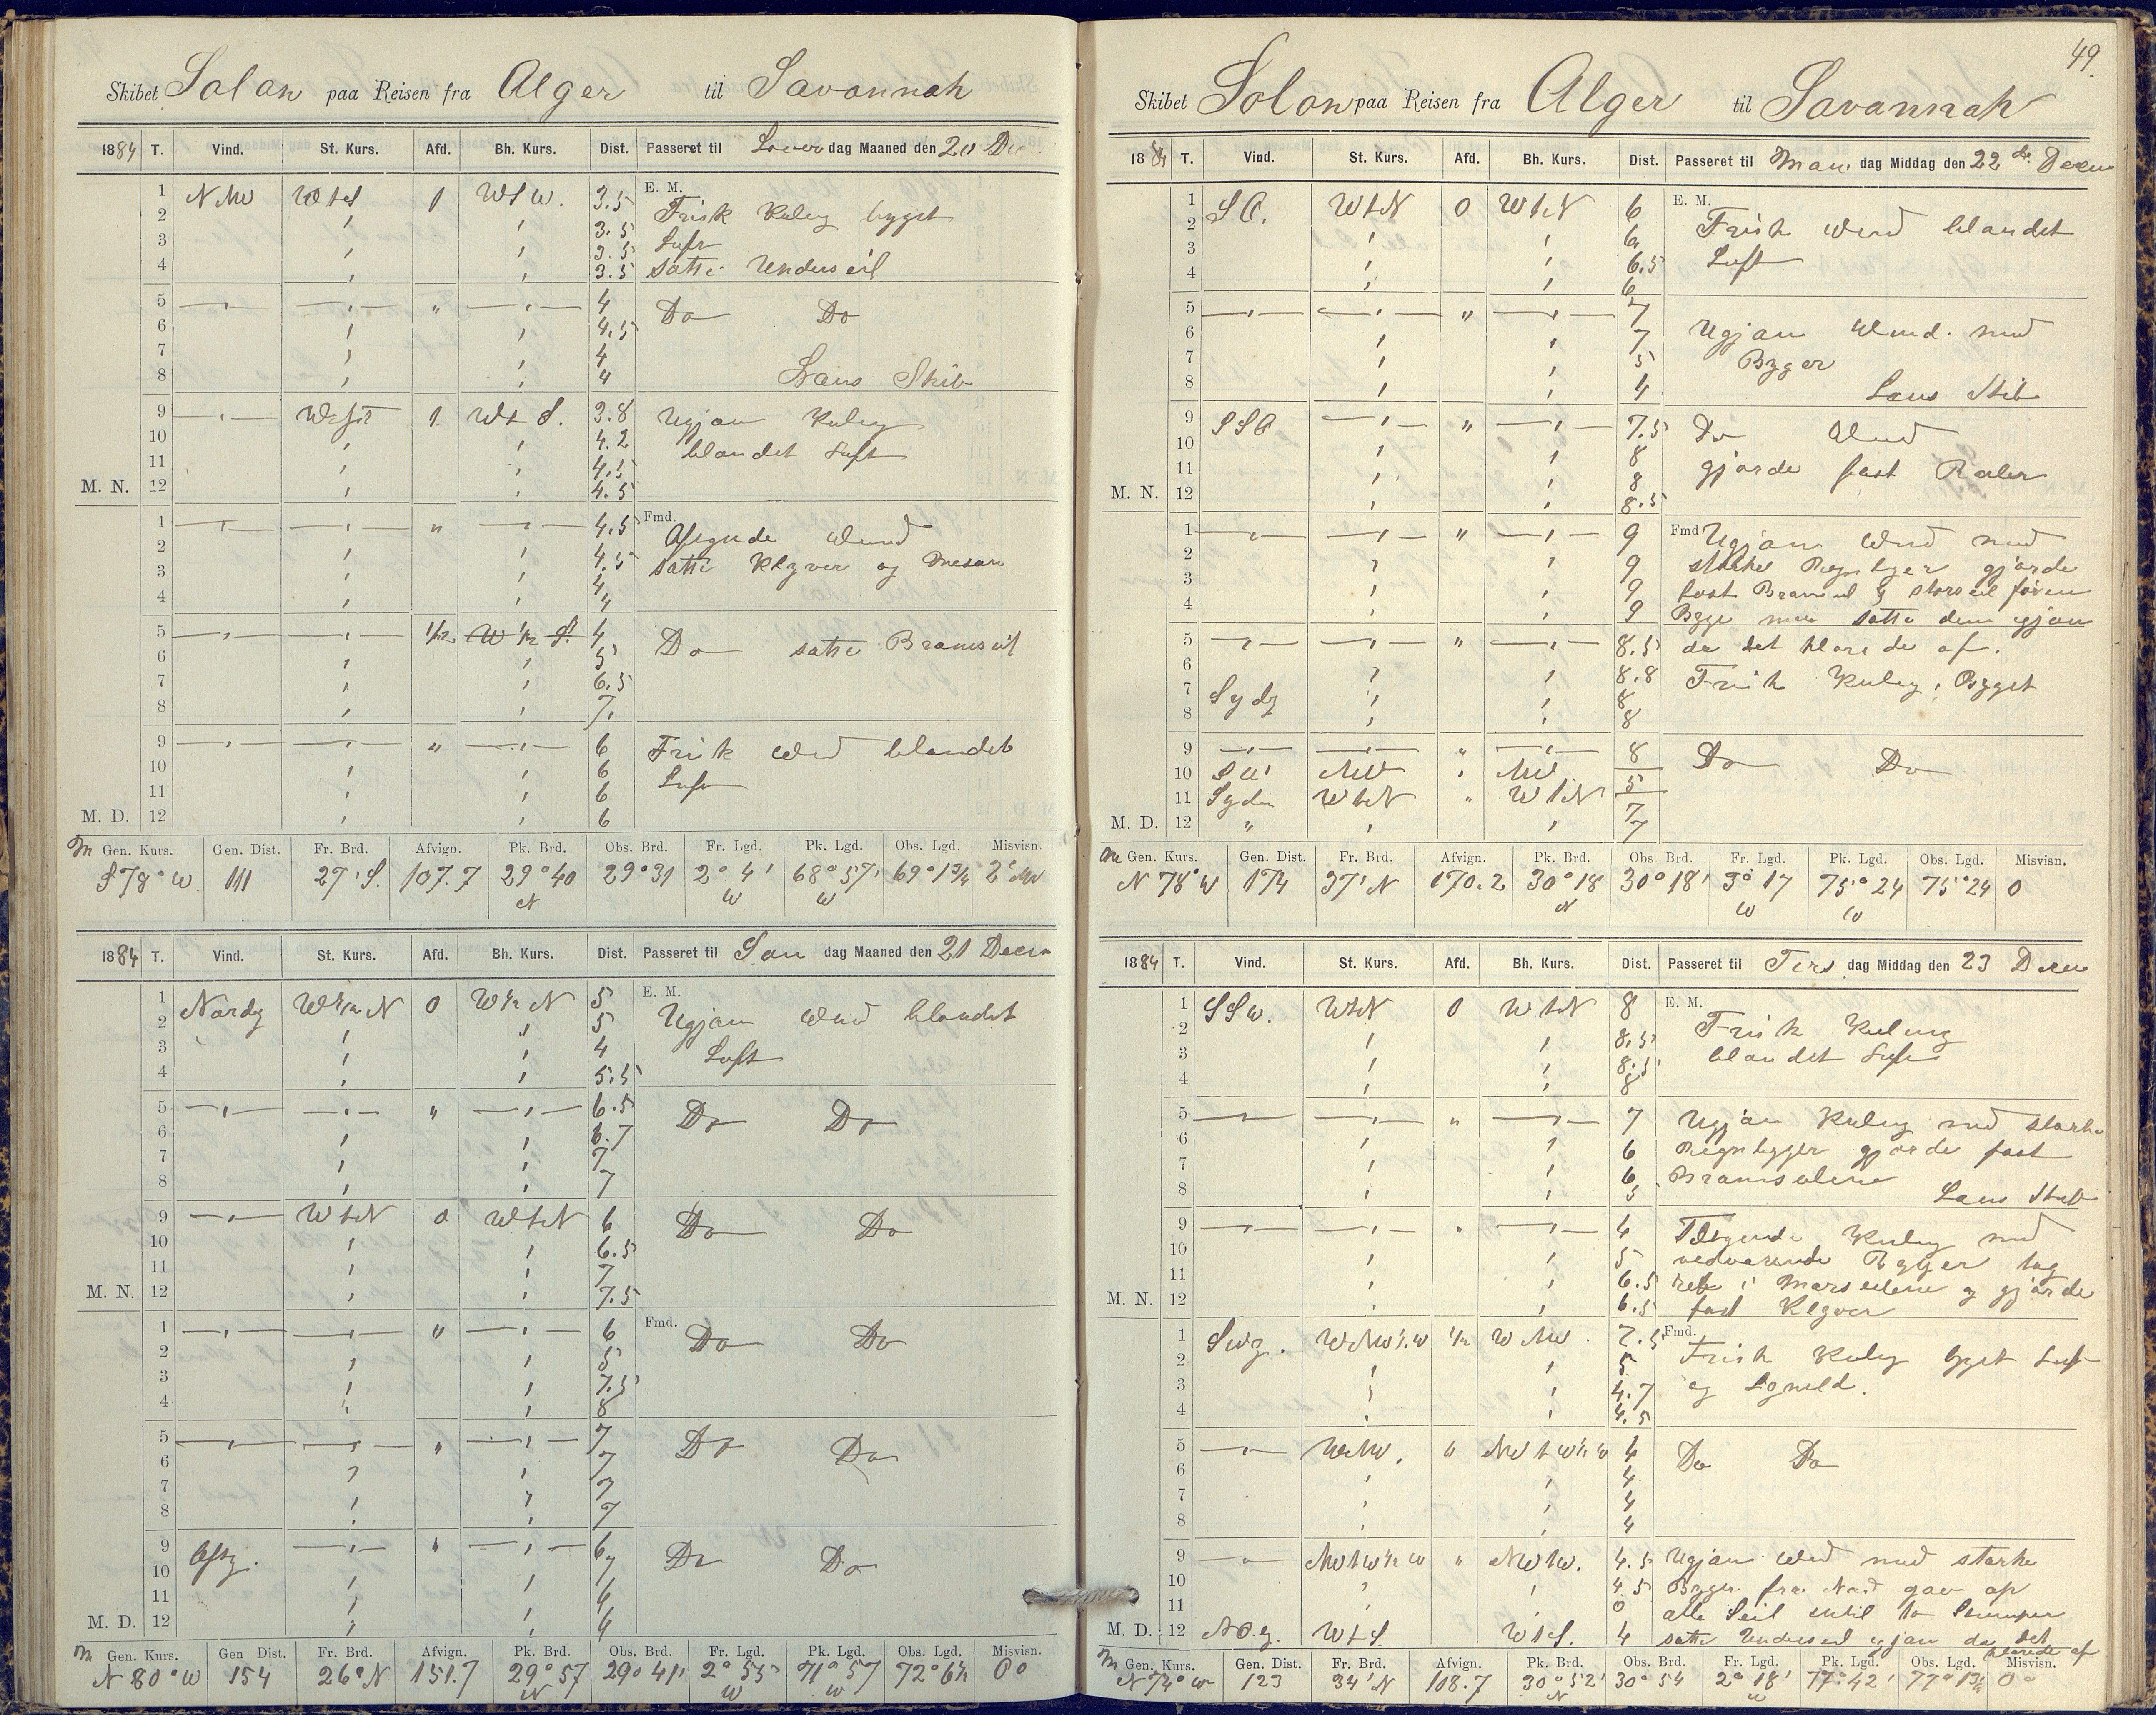 Skibet Solon paa Reisen fra Alger til Savannah
1884 T. Vind. St. Kurs. Afd. Bh. Kurs. Dist. Passeret til Løver dag Maaned den 20 Dec
E. M.
1 NNW WtS 0 WtS 3.5 Frisk Kuling bygget
2 3.5 Luft
3 3.5
4 3.5 satte Underseil
5 " 4 Do Do
6 4.5
7 4
8 4 Læns Skib
9 West 1 Wt S. 3.8 Ugjæn Kuling
10 4.2 blandet Luft
11 4.5
M. N. 12 4.5
Fmd.
1 " 4.5 Aftagende Vind
2 4.5 satte Klyver og Mesan
3 4
4 4
5 1/2 W 1/2 S. 4 Do satte Bramseil
6 5
7 6.5
8 7.
9 " 6 Frisk Vind blandet
10 6 Luft
11 6
M. D. 12 6
M Gen. Kurs. Gen. Dist. Fr. Brd. Afvign. Pk. Brd. Obs. Brd. Fr. Lgd. Pk. Lgd. Obs. Lgd. Misvisn.
S 78° W. 111 27' S. 107.7 29°40 N 29°31 2°4' W 68°57' W 69°13/4
1884 T. Vind. St. Kurs. Afd. Bh. Kurs. Dist. Passeret til Søn dag Maaned den 21 Decem
E. M.
1 Nordg W1/2N 0 W1/2N 5 Ugjæn Vind blandet
2 5
3 4 Luft
4 5.5
5 " 6.5 Do Do
6 6.7
7 7
8 7
9 WtN 0 WtN 6 Do Do
10 6.5
11 7
M. N. 12 7.5
Fmd.
1 " 6 Do Do
2 5
3 7.5
4 8
5 " 7 Do Do
6 7
7 7
8 7
9 Østg. " 6 Do Do
10 7
11 4
M. D. 12 4
M Gen. Kurs. Gen Dist. Fr. Brd. Afvign. Pk. Brd. Obs. Brd. Fr. Lgd. Pk. Lgd. Obs. Lgd. Misvisn.
N 80° W 154 26' N 151.7 29°57 N 29°41' 2°55' W 71°57 W 72°6 1/2 0°
49.
Skibet Solon paa Reisen fra Alger til Savannah
1884 T. Vind. St. Kurs. Afd. Bh. Kurs. Dist. Passeret til Man dag Middag den 22 de Decem
E. M.
1 SO. WtN 0 WtN 6 Frisk Vind blandet
2 6
3 6.5 Luft
4 6
5 " 7 Ugjæn Vind. med
6 7
7 5 Byger
8 4 Læns Skib
9 SSO " 7.5 Do Vind
10 8
11 8 gjorde fast Røiler
M. N. 12 8.5
Fmd
1 " 9 Ugjæn Vind med
2 9 stærke Regnbyger gjorde
3 9 fast Bramseil & Storseil før en
4 9 Byge men satte dem igjæn
5 " 8.5 da det klarede af.
6 8.8 Frisk Kuling, Bygget
7 Sydg 8
8 8
9 " 8 Do Do
10 SW NW NW 5
11 Syden WtN " WtN 7
M. D. 12 " 7
M Gen. Kurs. Gen. Dist. Fr. Brd. Afvign. Pk. Brd. Obs. Brd. Fr. Lgd. Pk. Lgd. Obs. Lgd. Misvisn.
N 78° W 174 37' N 170.2 30°18 N 30°18' 3°17 W 75°24 W 75°24 0
1884 T. Vind. St. Kurs. Afd. Bh. Kurs. Dist. Passeret til Tirs dag Middag den 23 Decem
E. M.
1 SSW. WtN 0 WtN 8 Frisk Kuling
2 8.5
3 8.5 blandet Luft
4 8
5 " 7 Ugjæn Kuling med stærke
6 6 Regnbyger gjorde fast
7 6 Bramseilene
8 5 Læns Skib
9 " 4 Tiltagende Kuling med
10 5 vedvarende Byger tog
11 6.5 reb i Marsseilene og gjorde
M. N. 12 6.5 fast Klyver
Fmd.
1 SWg. WNW1/2W 1/2 WNW. 7.5 Frisk Kuling bygget Luft
2 5
3 4.7 og Lynild.
4 4.5
5 WNW. " NWtW1/2W 4 Do Do
6 4
7 4
8 4
9 NWtW1/2W " NWtW. 4.5 Ugjæn Vind med stærke
10 4.5 Byger fra Nord gav op
11 0 alle Seil indtil to Stumper
M. D. 12 NO.g. WtS. WtS. 4 satte Underseil igjæn da det
klarede af
M Gen. Kurs. Gen. Dist. Fr. Brd. Afvign. Pk. Brd. Obs. Brd. Fr. Lgd. Pk. Lgd. Obs. Lgd. Misvisn.
N 74° W 123 34' N 118.7 30°52' N 30°54 2°18' W 77°42' 77°13 1/2 0°